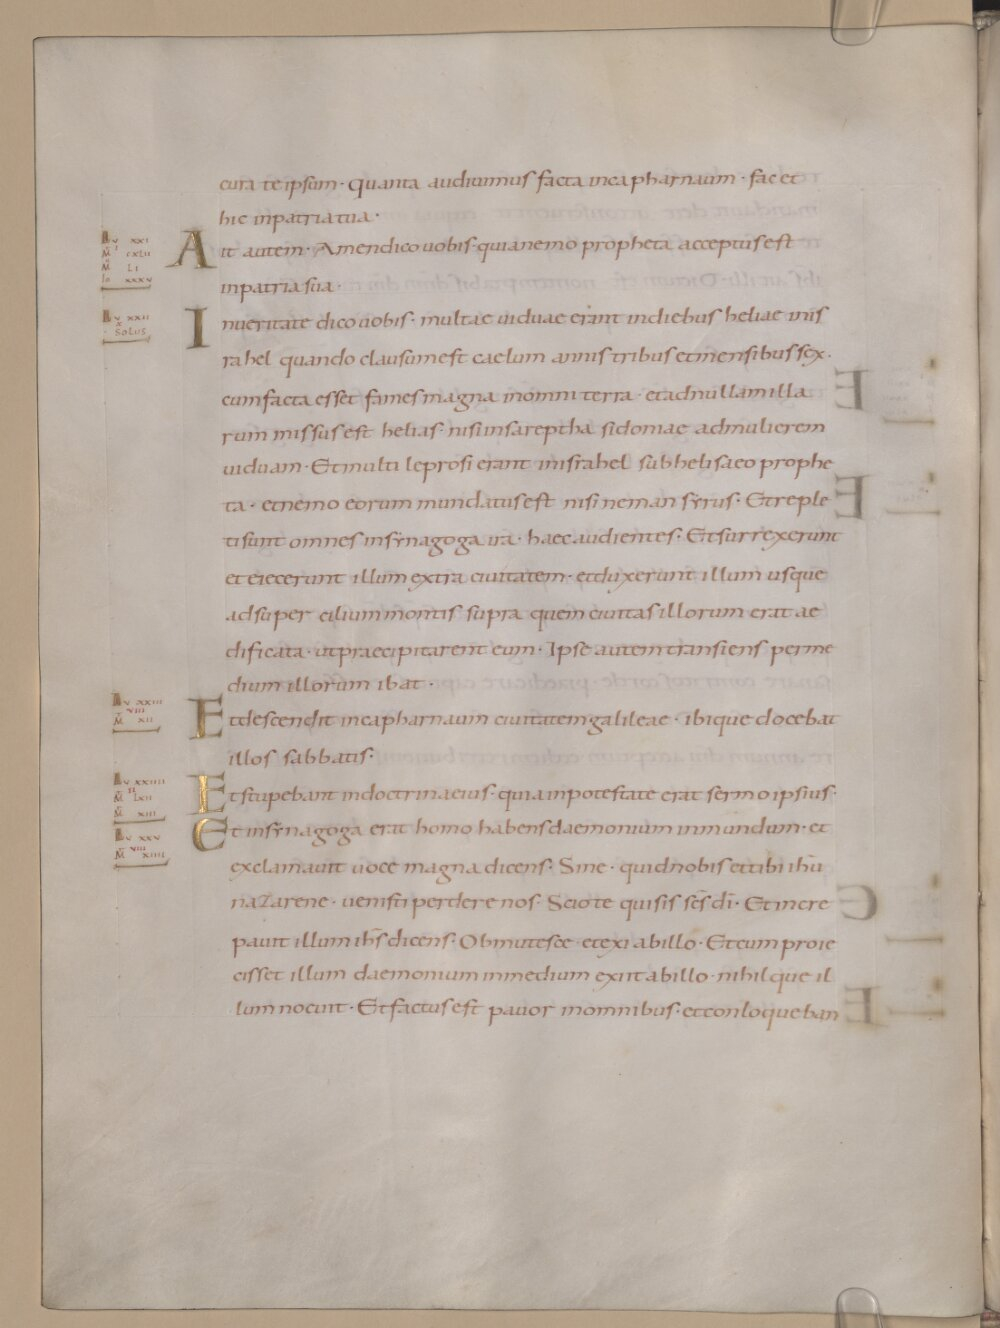 cura te ipsum · quanta audiuimus facta incapharnaum · fac et
hic inpatria tua ·
Lv XXI
M CXLII
M LI
Io XXXV
Ait autem · Amen dico uobis · quia nemo propheta acceptus est
inpatria sua ·
Lv XXII
X
SOLUS
Inueritate dico uobis · multae uiduae erant indiebus heliae inis
rahel quando clausum est caelum annis tribus et mensibus sex ·
cum facta esset fames magna inomni terra · et ad nullam illa
rum missus est helias · nisi insareptha sidoniae ad mulierem
uiduam · Et multi leprosi erant inisrahel sub helisaeo prophe
ta · et nemo eorum mundatus est nisi neman syrus · Et reple
ti sunt omnes insynagoga ira · haec audientes · Et surrexerunt
et eiecerunt illum extra ciuitatem · et duxerunt illum usque
ad supercilium montis supra quem ciuitas illorum erat ae
dificata · ut praecipitarent eum · Ipse autem transiens per me
dium illorum ibat ·
Lv XXIII
VIII
M XII
Et descendit incapharnaum ciuitatem galileae · ibique docebat
illos sabbatis ·
Lv XXIIII
II
M LXII
M XIII
Et stupebant indoctrina eius · quia inpotestate erat sermo ipsius ·
Lv XXV
VIII
M XIIII
Et insynagoga erat homo habens daemonium inmundum · et
exclamauit uoce magna dicens · Sine · quid nobis et tibi ihū
naZarene · uenisti perdere nos · Scio te qui sis scs dī · Et incre
pauit illum ihs dicens · Obmutesce et exi ab illo · Et cum proie
cisset illum daemonium inmedium exiit ab illo · nihilque il
lum nocuit · Et factus est pauor inomnibus · et conloqueban